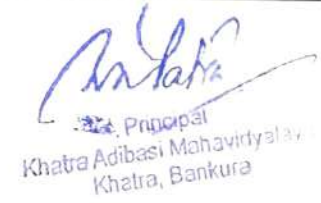 Principal
Khatra Adibasi Mahavidyalaya
Khatra, Bankura